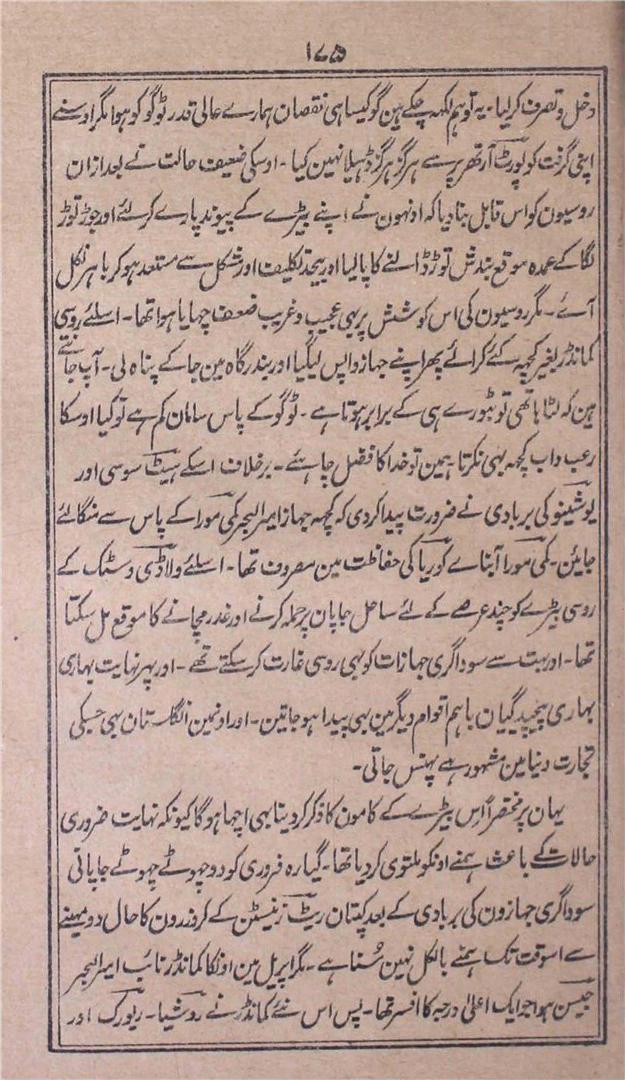 ۱۷۵
دخل و تصرف کر لیا ۔ یہ تو ہم لکہہ چکے ہین گو کیسا ہی نقصان ہمارے عالی قدر ٹوگو کو ہوا مگر اوسنے
اپنی گرفت کو پورٹ آرتھر پر سے ہرگز ہرگز ڈہیلا نہین کیا ۔ اوسکی ضعیف حالت نے بعد ازان
روسیون کو اس قابل بنا دیا کہ اونہون نے اپنے بیڑے کے پیوند پارے کر لئے اور جوڑ توڑ
لگا کے عمدہ موقع بندش توڑ ڈالنے کا پا لیا اور بیحد تکلیف اور شکل سے مستعد ہو کر باہر نکل
آئے ۔ مگر روسیون کی اس کوشش پر بہی عجیب و غریب ضعف چہایا ہوا تھا ۔ اسلئے روسی
کمانڈر بغیر کچہہ کئے کرائے پھر اپنے جہاز واپس لیگیا اور بندرگاہ مین جا کے پناہ لی ۔ آپ جانتے
ہین کہ لٹا ہاتھی تو ٹبورے ہی کے برابر ہوتا ہے ۔ ٹوگو کے پاس سامان کم ہے تو کیا اوسکا
رعب داب کچہہ بہی نکرتا ہمین تو خدا کا فضل چاہئے ۔ برخلاف اسکے ہیٹ سوسی اور
یوشینو کی بربادی نے ضرورت پیدا کر دی کہ کچہہ جہاز امیر البحر کمی مورا کے پاس سے منگالئے
جائین ۔ کمی مورا آبنائے کوریا کی حفاظت مین مصروف تھا ۔ اسلئے ولاڈی وسٹک کے
روسی بیڑے کو چند عرصے کے لئے ساحل جاپان پر حملہ کرنے اور غدر مچانے کا موقع مل سکتا
تھا ۔ اور بہت سے سوداگری جہازات کو بہی روسی غارت کر سکتے تھے ۔ اور پہر نہایت بہاری
بہاری پیچیدگیان باہم اقوام دیگر مین بہی پیدا ہو جاتین ۔ اور اونہین انگلستان بہی جسکی
تجارت دنیا مین مشہور ہے پہنس جاتی ۔
یہان پر مختصراً اس بیڑے کے کامون کا ذکر کر دینا بہی اچہا ہو گا کیونکہ نہایت ضروری
حالات کے باعث ہمنے اونکو ملتوی کر دیا تھا ۔ گیارہ فروری کو دو چہوٹے چہوٹے جاپانی
سوداگری جہازون کی بربادی کے بعد کپتان ریٹ زنیسٹن کے کروزرون کا حال دو مہینے
سے اسوقت تک ہمنے بالکل نہین سُنا ہے ۔ مگر اپریل مین اونکا کمانڈر نائب امیر البحر
جیسن ہوا جو ایک اعلیٰ درجہ کا افسر تھا ۔ پس اس نئے کمانڈر نے روشیا ۔ ریورک اور